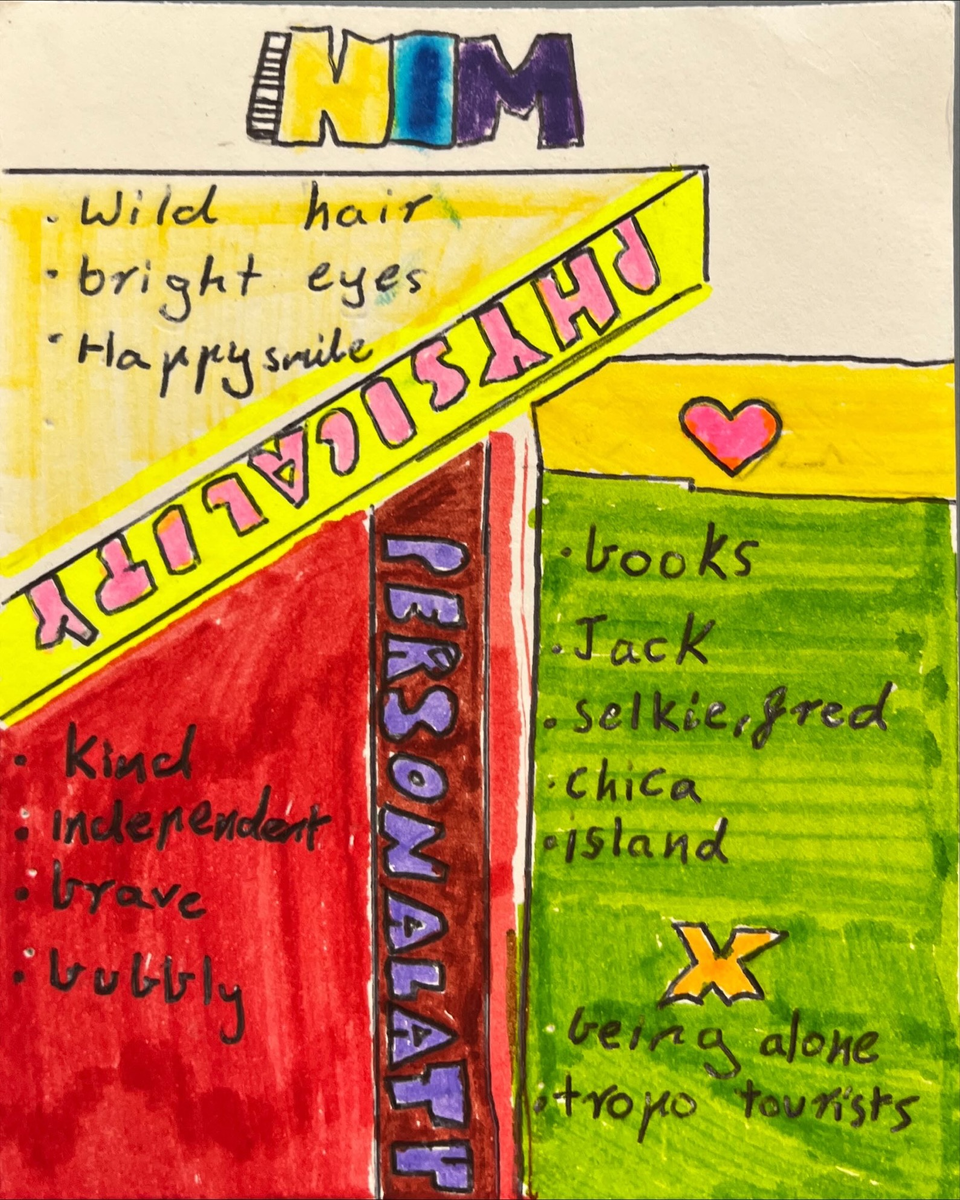 NIM
Wild hair
bright eyes
Happy smile
PHYSICALITY
PERSONALATY
Kind
independent
brave
bubbly
books
Jack
selkie, fred
chica
island
X
being alone
tropo tourists